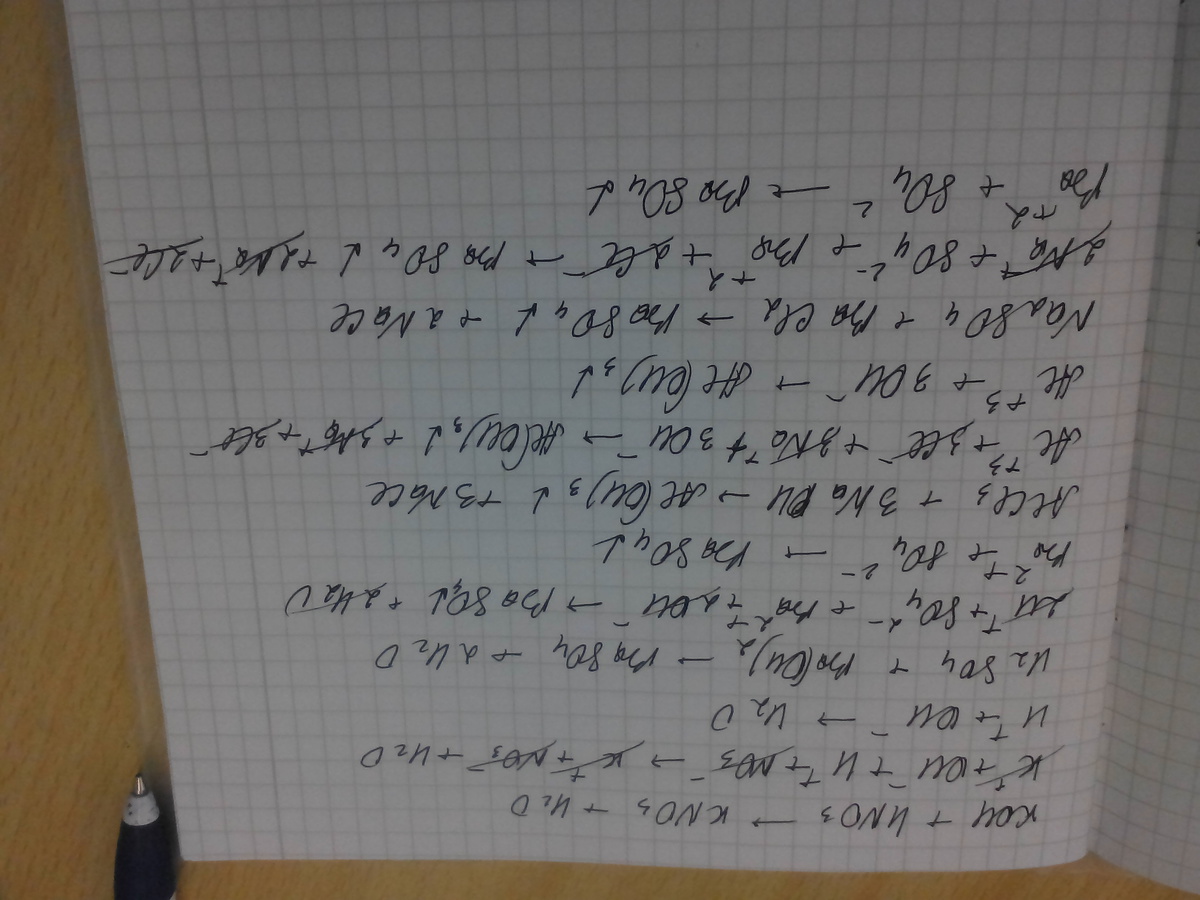 KOH + HNO₃ → KNO₃ + H₂O
K⁺ + OH⁻ + H⁺ + NO₃⁻ → K⁺ + NO₃⁻ + H₂O
H⁺ + OH⁻ → H₂O
H₂SO₄ + Ba(OH)₂ → BaSO₄ + 2H₂O
2H⁺ + SO₄²⁻ + Ba²⁺ + 2OH⁻ → BaSO₄↓ + 2H₂O
Ba²⁺ + SO₄²⁻ → BaSO₄↓
AlCl₃ + 3NaOH → Al(OH)₃↓ + 3NaCl
Al⁺³ + 3Cl⁻ + 3Na⁺ + 3OH⁻ → Al(OH)₃↓ + 3Na⁺ + 3Cl⁻
Al⁺³ + 3OH⁻ → Al(OH)₃↓
Na₂SO₄ + BaCl₂ → BaSO₄↓ + 2NaCl
2Na⁺ + SO₄²⁻ + Ba⁺² + 2Cl⁻ → BaSO₄↓ + 2Na⁺ + 2Cl⁻
Ba⁺² + SO₄² → BaSO₄↓